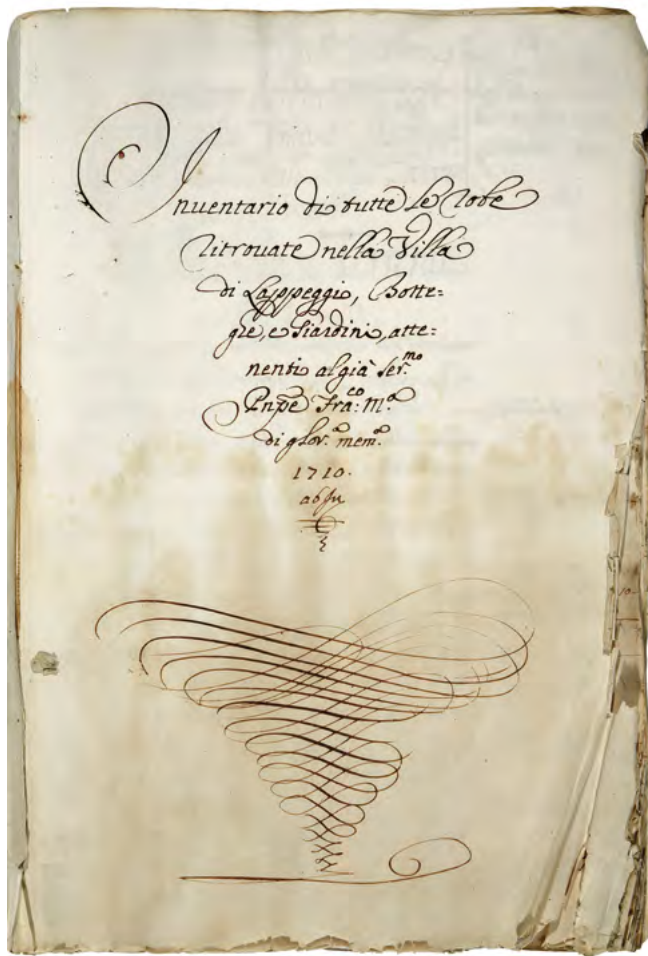 Inuentario di tutte le Robe
ritrouate nella Villa
di Lappeggio, Botte:
ghe, e Giardini, atte:
nenti al già Ser.mo
Pnpe Fra:co M.a
di glor.a mem.a
1710.
ab Inc